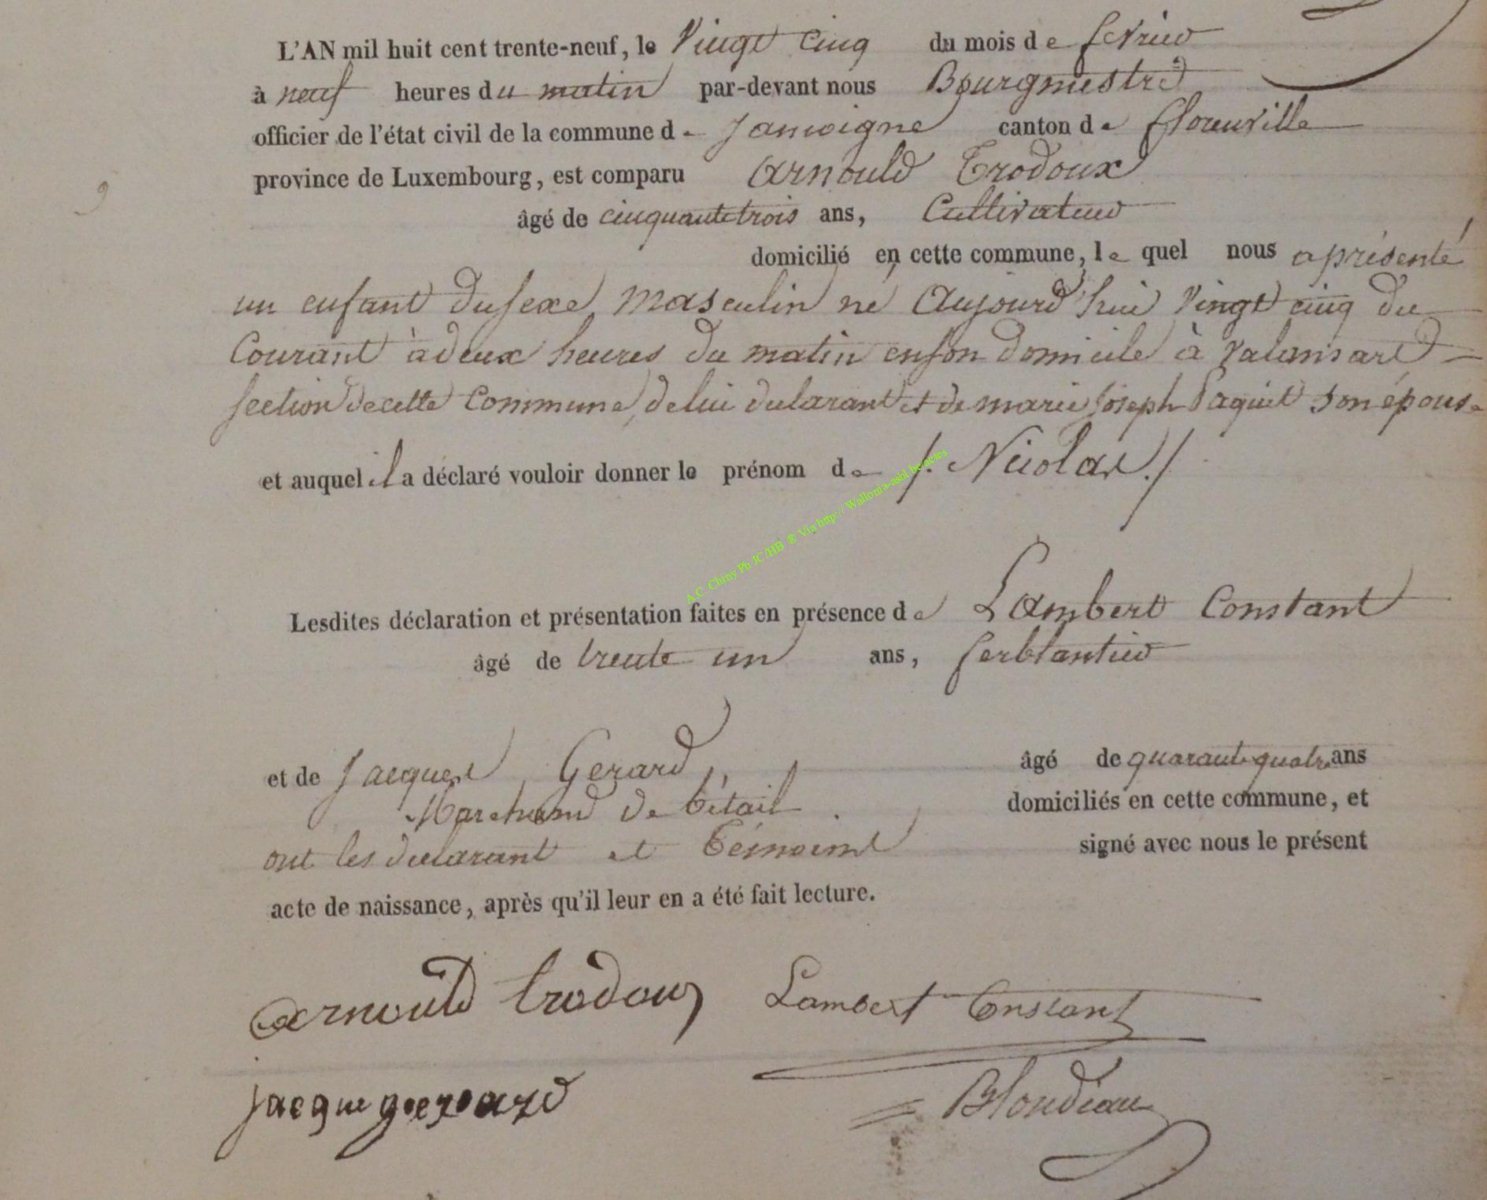 L'AN mil huit cent trente-neuf, le Vingt cinq du mois de fevrier
à neuf heures du matin par-devant nous Bourgmestre
officier de l'état civil de la commune de Jamoigne canton de florenville
province de Luxembourg, est comparu Arnould Trodoux
âgé de cinquante trois ans, Cultivateur
domicilié en cette commune, le quel nous a présenté
un enfant du sexe masculin né Aujourd'hui Vingt cinq du
Courant à deux heures du matin en son domicile à Valansart
section de cette Commune, de lui declarant et de marie joseph Paquet son épouse
et auquel il a déclaré vouloir donner le prénom de /. Nicolas ./
A.C. Chiny Ph JC/HB ® Via http://
Lesdites déclaration et présentation faites en présence de Lambert Constant
âgé de trente un ans, ferblantier
et de Jacques Gerard, âgé de quarante quatre ans
Marchand de bétail domiciliés en cette commune, et
ont les declarant et témoins signé avec nous le présent
acte de naissance, après qu'il leur en a été fait lecture.
Arnould trodoux Lambert Constant
jacque gerard Blondiau